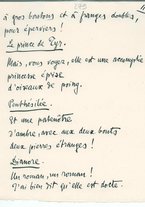 275
à gros boutons et à franges doubles,
pour éperviers !
Le prince de Tyr.
Mais, vous voyez, elle est une accomplie
princesse éprise
d'oiseaux de poing.
Penthésilée.
Et une patenôtre
d'ambre, avec aux deux bouts
deux pierres étranges !
Dinmore.
Un roman, un roman !
J'ai bien dit qu'elle est docte.